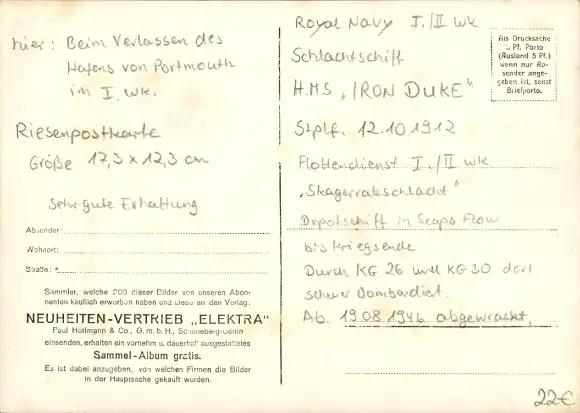 hier: Beim Verlassen des
Hafens von Portmouth
im I. Wk.
Riesenpostkarte
Größe 17,3 x 12,3 cm
Sehr gute Erhaltung
Absender:
Wohnort:
Straße:
Sammler, welche 200 dieser Bilder von unseren Abon-
nenten käuflich erworben haben und diese an den Verlag:
NEUHEITEN-VERTRIEB „ELEKTRA“
Paul Hoffmann & Co., G. m. b. H., Schöneberg-Berlin
einsenden, erhalten ein vornehm u. dauerhaft ausgestattetes
Sammel-Album gratis.
Es ist dabei anzugeben, von welchen Firmen die Bilder
in der Hauptsache gekauft wurden.
Royal Navy I./II Wk
Schlachtschiff
H.M.S „IRON DUKE“
Stplf. 12.10 1912
Flottendienst I./II Wk
„Skagerrakschlacht“
Depotschiff in Scapa Flow
bis Kriegsende
Durch KG 26 und KG 30 dort
schwer bombardiert.
Ab. 19.08 1946 abgewrackt.
Als Drucksache
3 Pf. Porto
(Ausland 5 Pf.)
wenn nur Ab-
sender ange-
geben ist, sonst
Briefporto.
22€